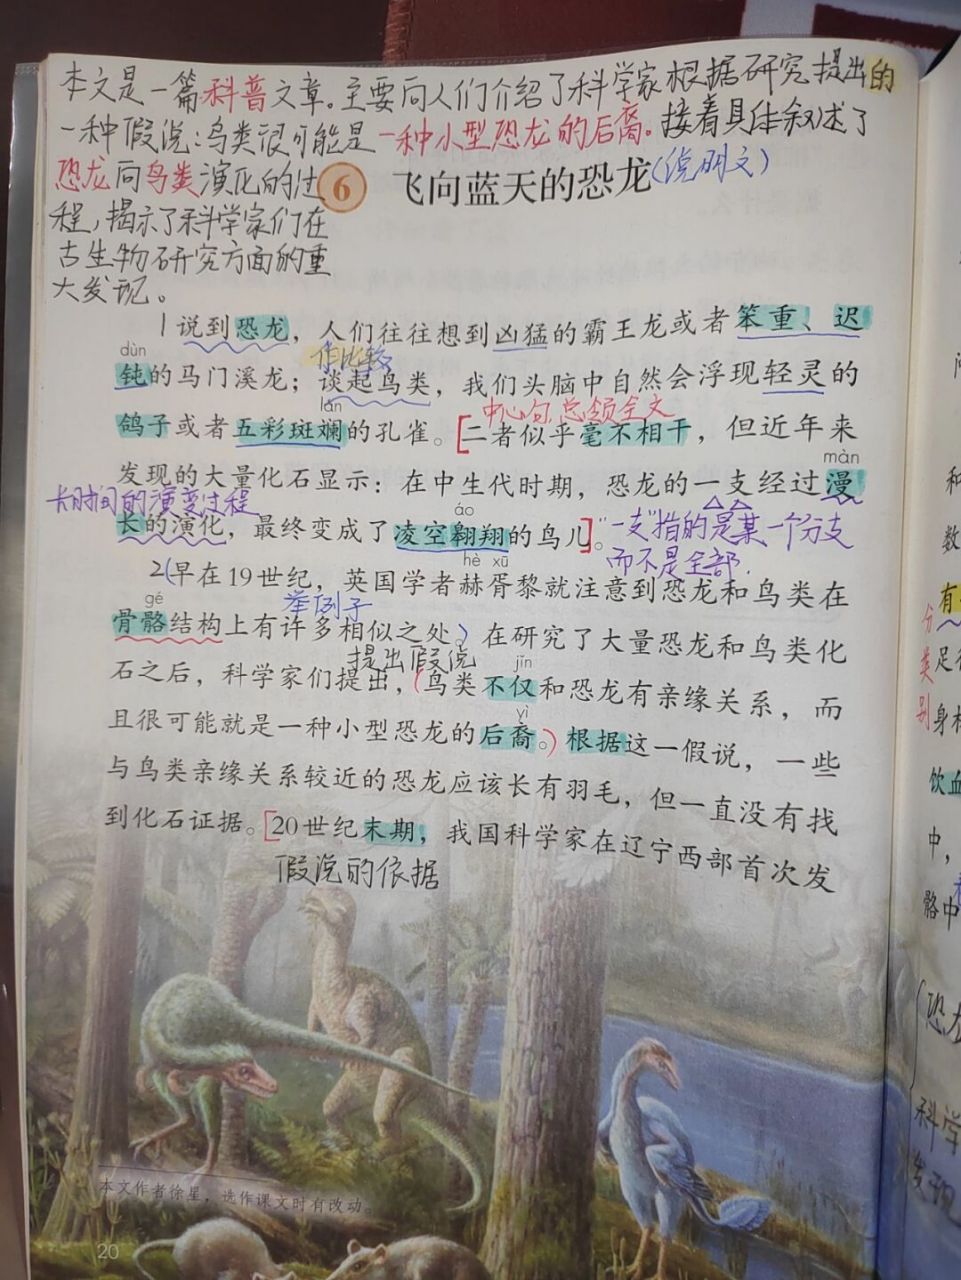 本文是一篇科普文章。主要向人们介绍了科学家根据研究提出的
一种假说:鸟类很可能是一种小型恐龙的后裔。接着具体叙述了
恐龙向鸟类演化的过
程,揭示了科学家们在
古生物研究方面的重
大发现。
6 飞向蓝天的恐龙(说明文)
1说到恐龙，人们往往想到凶猛的霸王龙或者笨重、迟
dùn
作比较
钝的马门溪龙；谈起鸟类，我们头脑中自然会浮现轻灵的
lán
中心句 总领全文
鸽子或者五彩斑斓的孔雀。[二者似乎毫不相干，但近年来
màn
发现的大量化石显示：在中生代时期，恐龙的一支经过漫
长时间的演变过程
áo
长的演化，最终变成了凌空翱翔的鸟儿]。
"一支"指的是某一个分支
而不是全部.
hè xū
2(早在19世纪，英国学者赫胥黎就注意到恐龙和鸟类在
gé
举例子
骨骼结构上有许多相似之处。)在研究了大量恐龙和鸟类化
提出假说
jǐn
石之后，科学家们提出，(鸟类不仅和恐龙有亲缘关系，而
yì
且很可能就是一种小型恐龙的后裔。)根据这一假说，一些
与鸟类亲缘关系较近的恐龙应该长有羽毛，但一直没有找
到化石证据。[20世纪末期，我国科学家在辽宁西部首次发
假说的依据
本文作者徐星，选作课文时有改动。
20
和
数
有
分
类
别
足
身
饮血
中，
骼中
恐龙
科学
发现